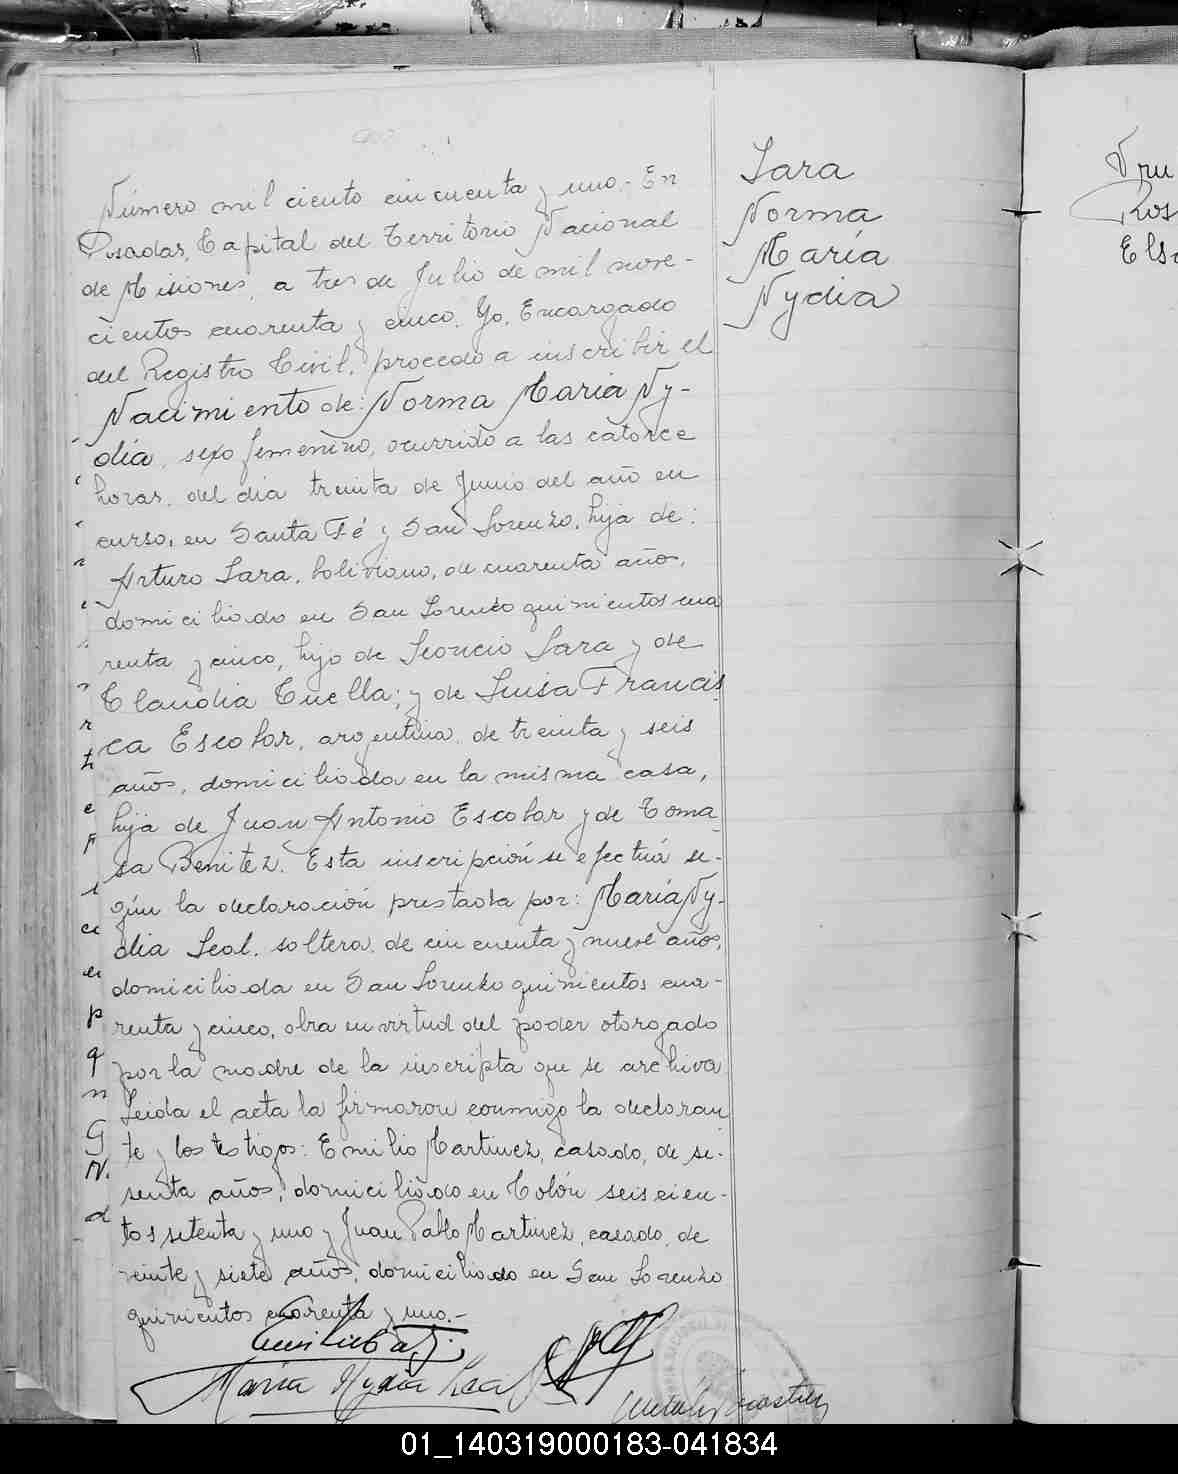 Número mil ciento cincuenta y uno.- En
Posadas, Capital del Territorio Nacional
de Misiones, a tres de Julio de mil nove-
cientos cuarenta y cinco. Yo, Encargado
del Registro Civil, procedo a inscribir el
Nacimiento de: Norma María Ny-
dia, sexo femenino, ocurrido a las catorce
horas, del día treinta de Junio del año en
curso, en Santa Fé y San Lorenzo, hija de:
Arturo Lara, boliviano, de cuarenta años,
domiciliado en San Lorenzo quinientos cua
renta y cinco, hijo de Leoncio Lara y de
Claudia Cuella; y de Luisa Francis
ca Escobar, argentina, de treinta y seis
años, domiciliada en la misma casa,
hija de Juan Antonio Escobar y de Toma_
sa Benitez. Esta inscripción se efectuá se-
gún la declaración prestada por: María Ny-
dia Leal, soltera, de cincuenta y nueve años,
domiciliada en San Lorenzo quinientos cua-
renta y cinco, obra en virtud del poder otorgado
por la madre de la inscripta que se archiva
Leida el acta la firmaron conmigo la declaran
te y los testigos: Emilio Martinez, casado, de se-
senta años, domiciliado en Colón seiscien-
tos setenta y uno y Juan Pablo Martinez, casado, de
veinte y siete años, domiciliado en San Lorenzo
quinientos cuarenta y uno.-
María Nydia Leal
Lara
Norma
María
Nydia
Ros
Elsa
01_140319000183-041834